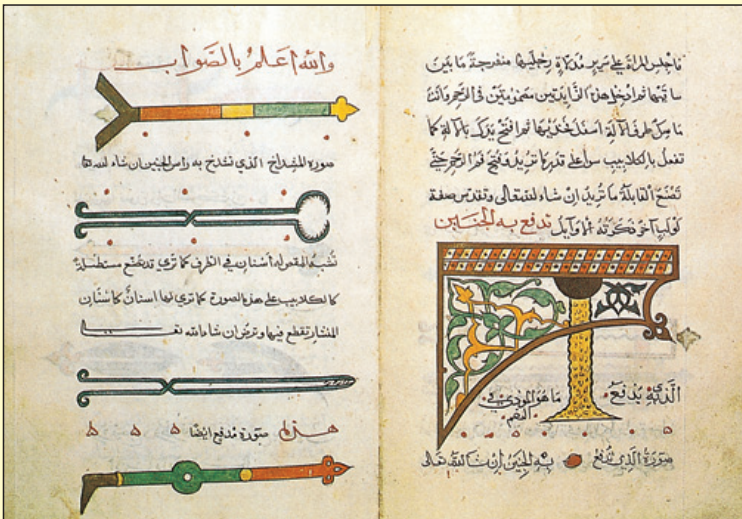 فاجلس المراة على سرير مدلاة رجليها منفرجة ما بين
ساقيها ثم ادخل هذا الزايدتين مضمومتين في الرحم وانت
ماسك طرف الآلة اسفل فخذيها ثم افتح يدك بالآلة كما
تفعل بالكلاليب سوا على قدر ما تريد فتح فم الرحم حتى
تصنع القابلة ما تريد ان شاء الله تعالى وتقدس صفة
لولب آخر ذكرته الاوايل تدفع به الجنين
الذي يدفع ما هو
صورة الذي تدفع به الجنين ان شا الله تعالى
والله اعلم بالصواب
صورة المشداخ الذي تشدخ به راس الجنين ان شاء الله
تشبه المقص له اسنان في الطرف كما تري قد يصنع مستطيلة
كالكلاليب على هذه الصورة كما تري لها اسنان كاسنان
المنشار تقطع فيها وترض ان شاء الله
صورة مدفع ايضا ه ه ه